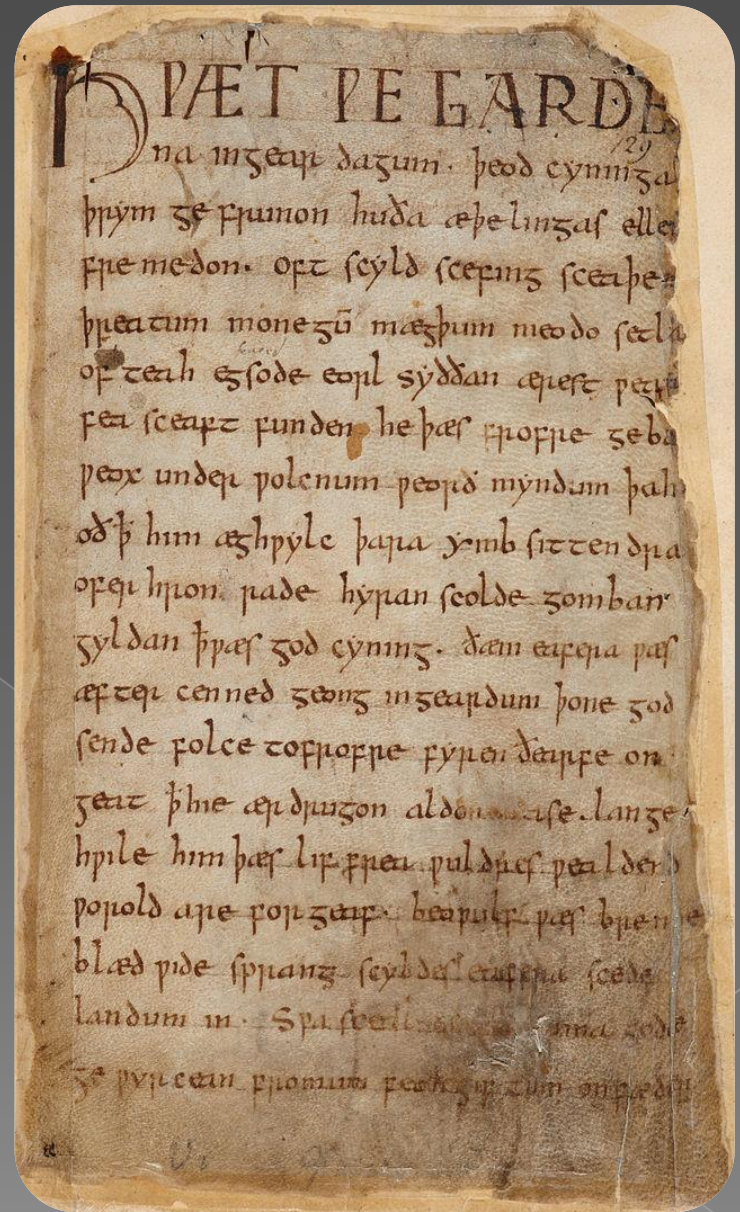 HǷÆT ǷE GARDE
129
na ingear dagum. þeod cyninga
þrym ge frunon huða æþelingas elle
fremedon. oft scyld scefing sceaþe
þreatum monegū mægþum meodo setla
of teah egsode eorl syððan ærest
fea sceaft funden he þæs frofre geba
ƿeox under ƿolcnum ƿeorð myndum þah
oð ꝥ him æghƿylc þara ymb sittendra
ofer hron rade hyran scolde gomban
gyldan ꝥ ƿæs god cyning. ðæm eafera ƿæs
æfter cenned geong ingeardum þone god
sende folce tofrofre fyren ðearfe on
geat ꝥ hie ær drugon lange
hƿile him þæs lif frea ƿuldres ƿealdend
ƿorold are forgeaf. beoƿulf ƿæs breme
blæd ƿide sprang scyldes eafera scede
landum in. Sƿa gode
ge ƿyrcean fromum